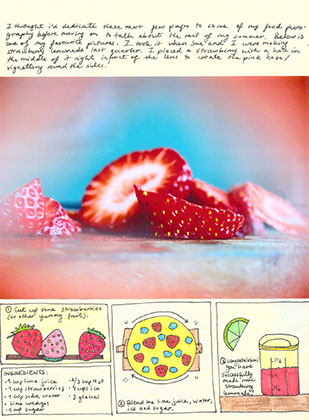 I thought i'd dedicate these next few pages to some of my food photo-
graphy before moving on to talk about the rest of my summer. Below is
one of my favourite pictures. I took it when Sue and I were making
strawberry lemonade last quarter. I placed a strawberry with a hole in
the middle of it right infront of the lens to create the pink haze/
vignetting round the sides.
① Cut up some strawberries
(or other yummy fruit).
INGREDIENTS:
• 1 cup lime juice
• 1 cup strawberries
• 1 cup soda water
• lime wedges
• 1 cup sugar
• 1/3 cup H2O
• 4 cups ice
• 2 glasses
② Blend the lime juice, water,
ice and sugar.
③ Congratulations!
You have
successfully
made some
strawberry
lemonade!